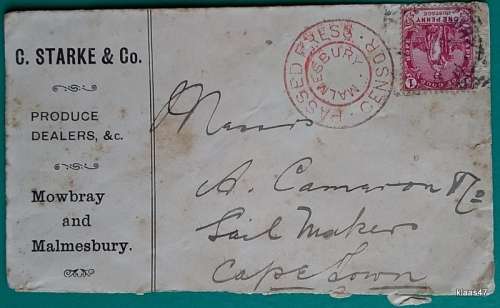 C. STARKE & Co.
PRODUCE
DEALERS, &c.
Mowbray
and
Malmesbury.
PASSED PRESS CENSOR
MALMESBURY · MALMESBURY
ONE PENNY
POSTAGE
Messrs
A. Cameron & Co
Sail Makers
Cape Town
klaas47